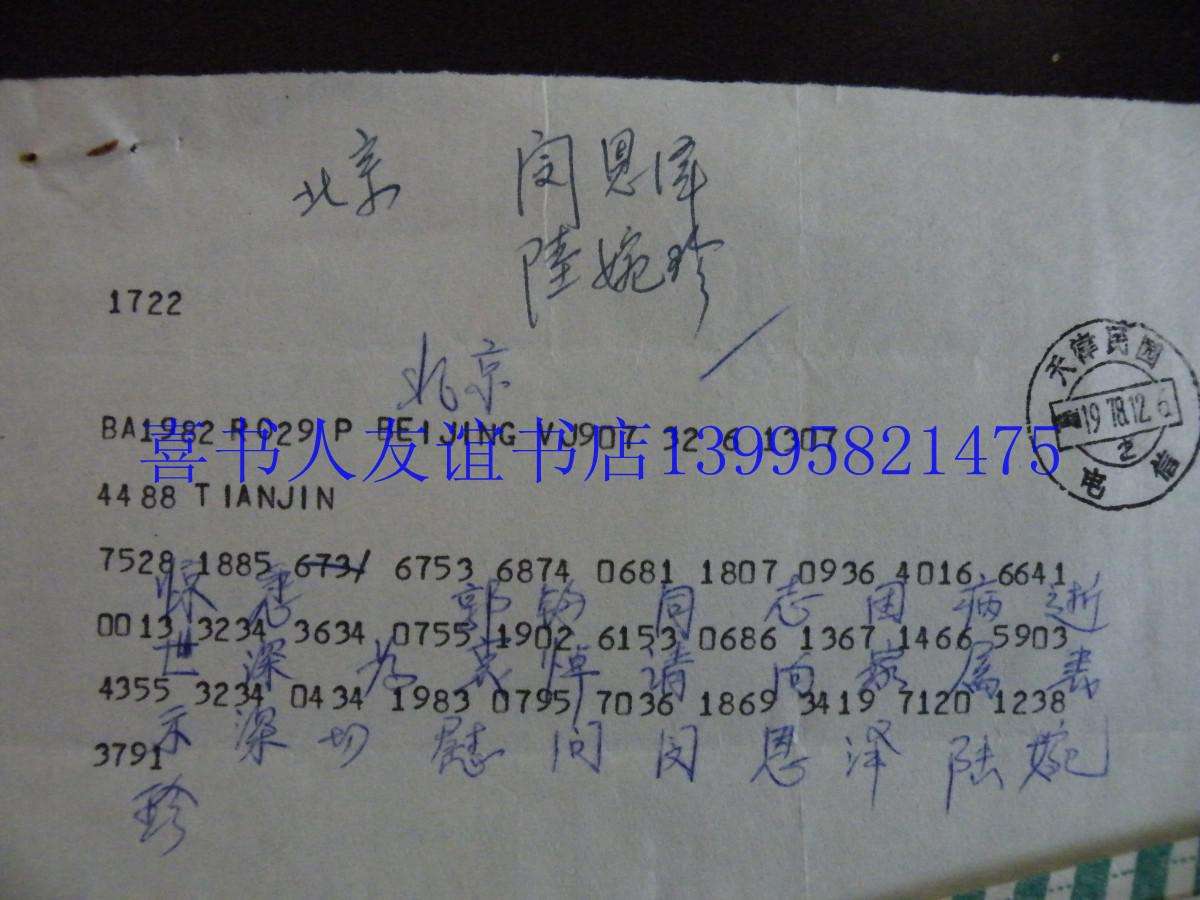 北京 闵恩泽
陆婉珍
1722
北京
BA1982 R029 P BEIJING VJ907 32 6 1307
喜书人友谊书店13995821475
4488 TIANJIN
7528 1885 673/ 6753 6874 0681 1807 0936 4016 6641
惊悉 郭钧同志因病逝
0013 3234 3634 0755 1902 6153 0686 1367 1466 5903
世深为哀悼请向家属表
4355 3234 0434 1983 0795 7036 1869 3419 7120 1238
示深切慰问闵恩泽陆婉
3791
珍
天津民园
1978.12.6
2
电信